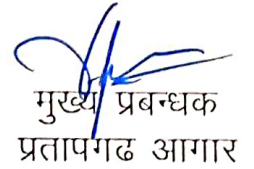 मुख्य प्रबन्धक
प्रतापगढ आगार